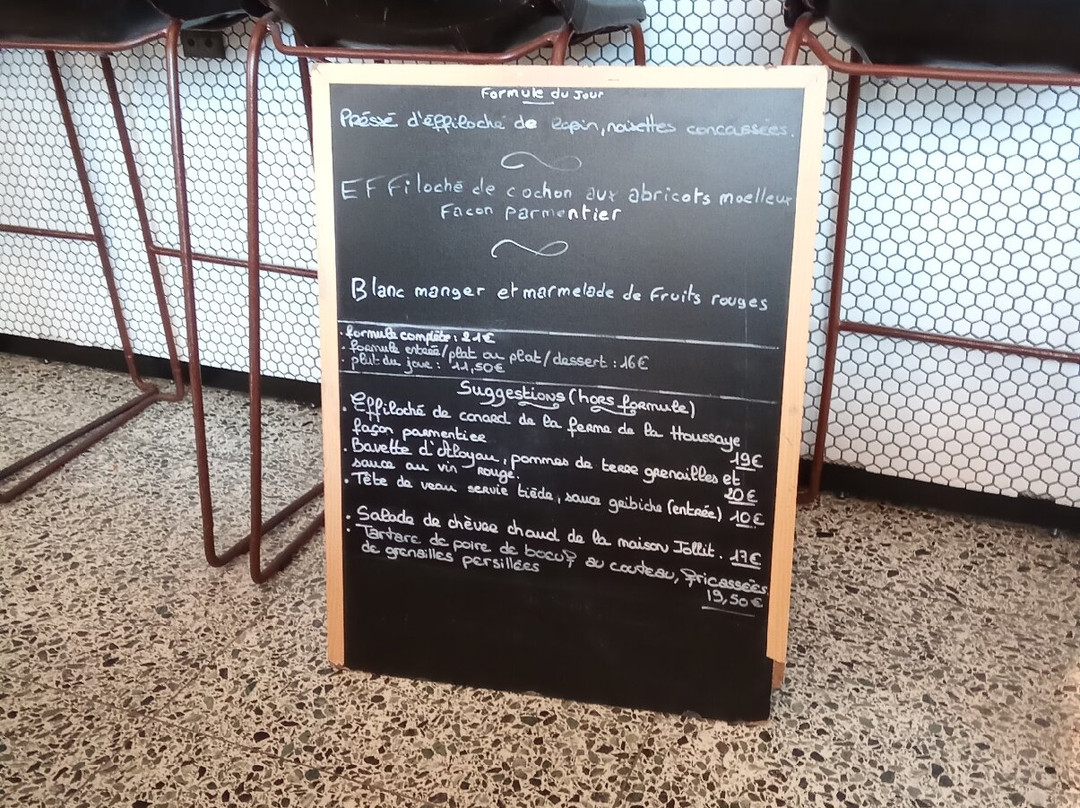 Formule du Jour
Préssé d'éffiloché de lapin, noisettes concassées.
EFFiloché de cochon aux abricots moelleux
Facon parmentier
Blanc manger et marmelade de Fruits rouges
. formule complète : 21€
. formule entrée/plat ou plat/dessert : 16€
. plat du jour : 11,50€
Suggestions (hors formule)
. Effiloché de canard de la ferme de la Houssaye
façon parmentier 19€
. Bavette d'Aloyau, pommes de terre grenailles et
sauce au vin rouge. 20€
. Tête de veau servie tiède, sauce gribiche (entrée) 10€
. Salade de chèvre chaud de la maison Jollit. 17€
. Tartare de poire de boeuf au couteau, fricassées
de grenailles persillées 19,50€